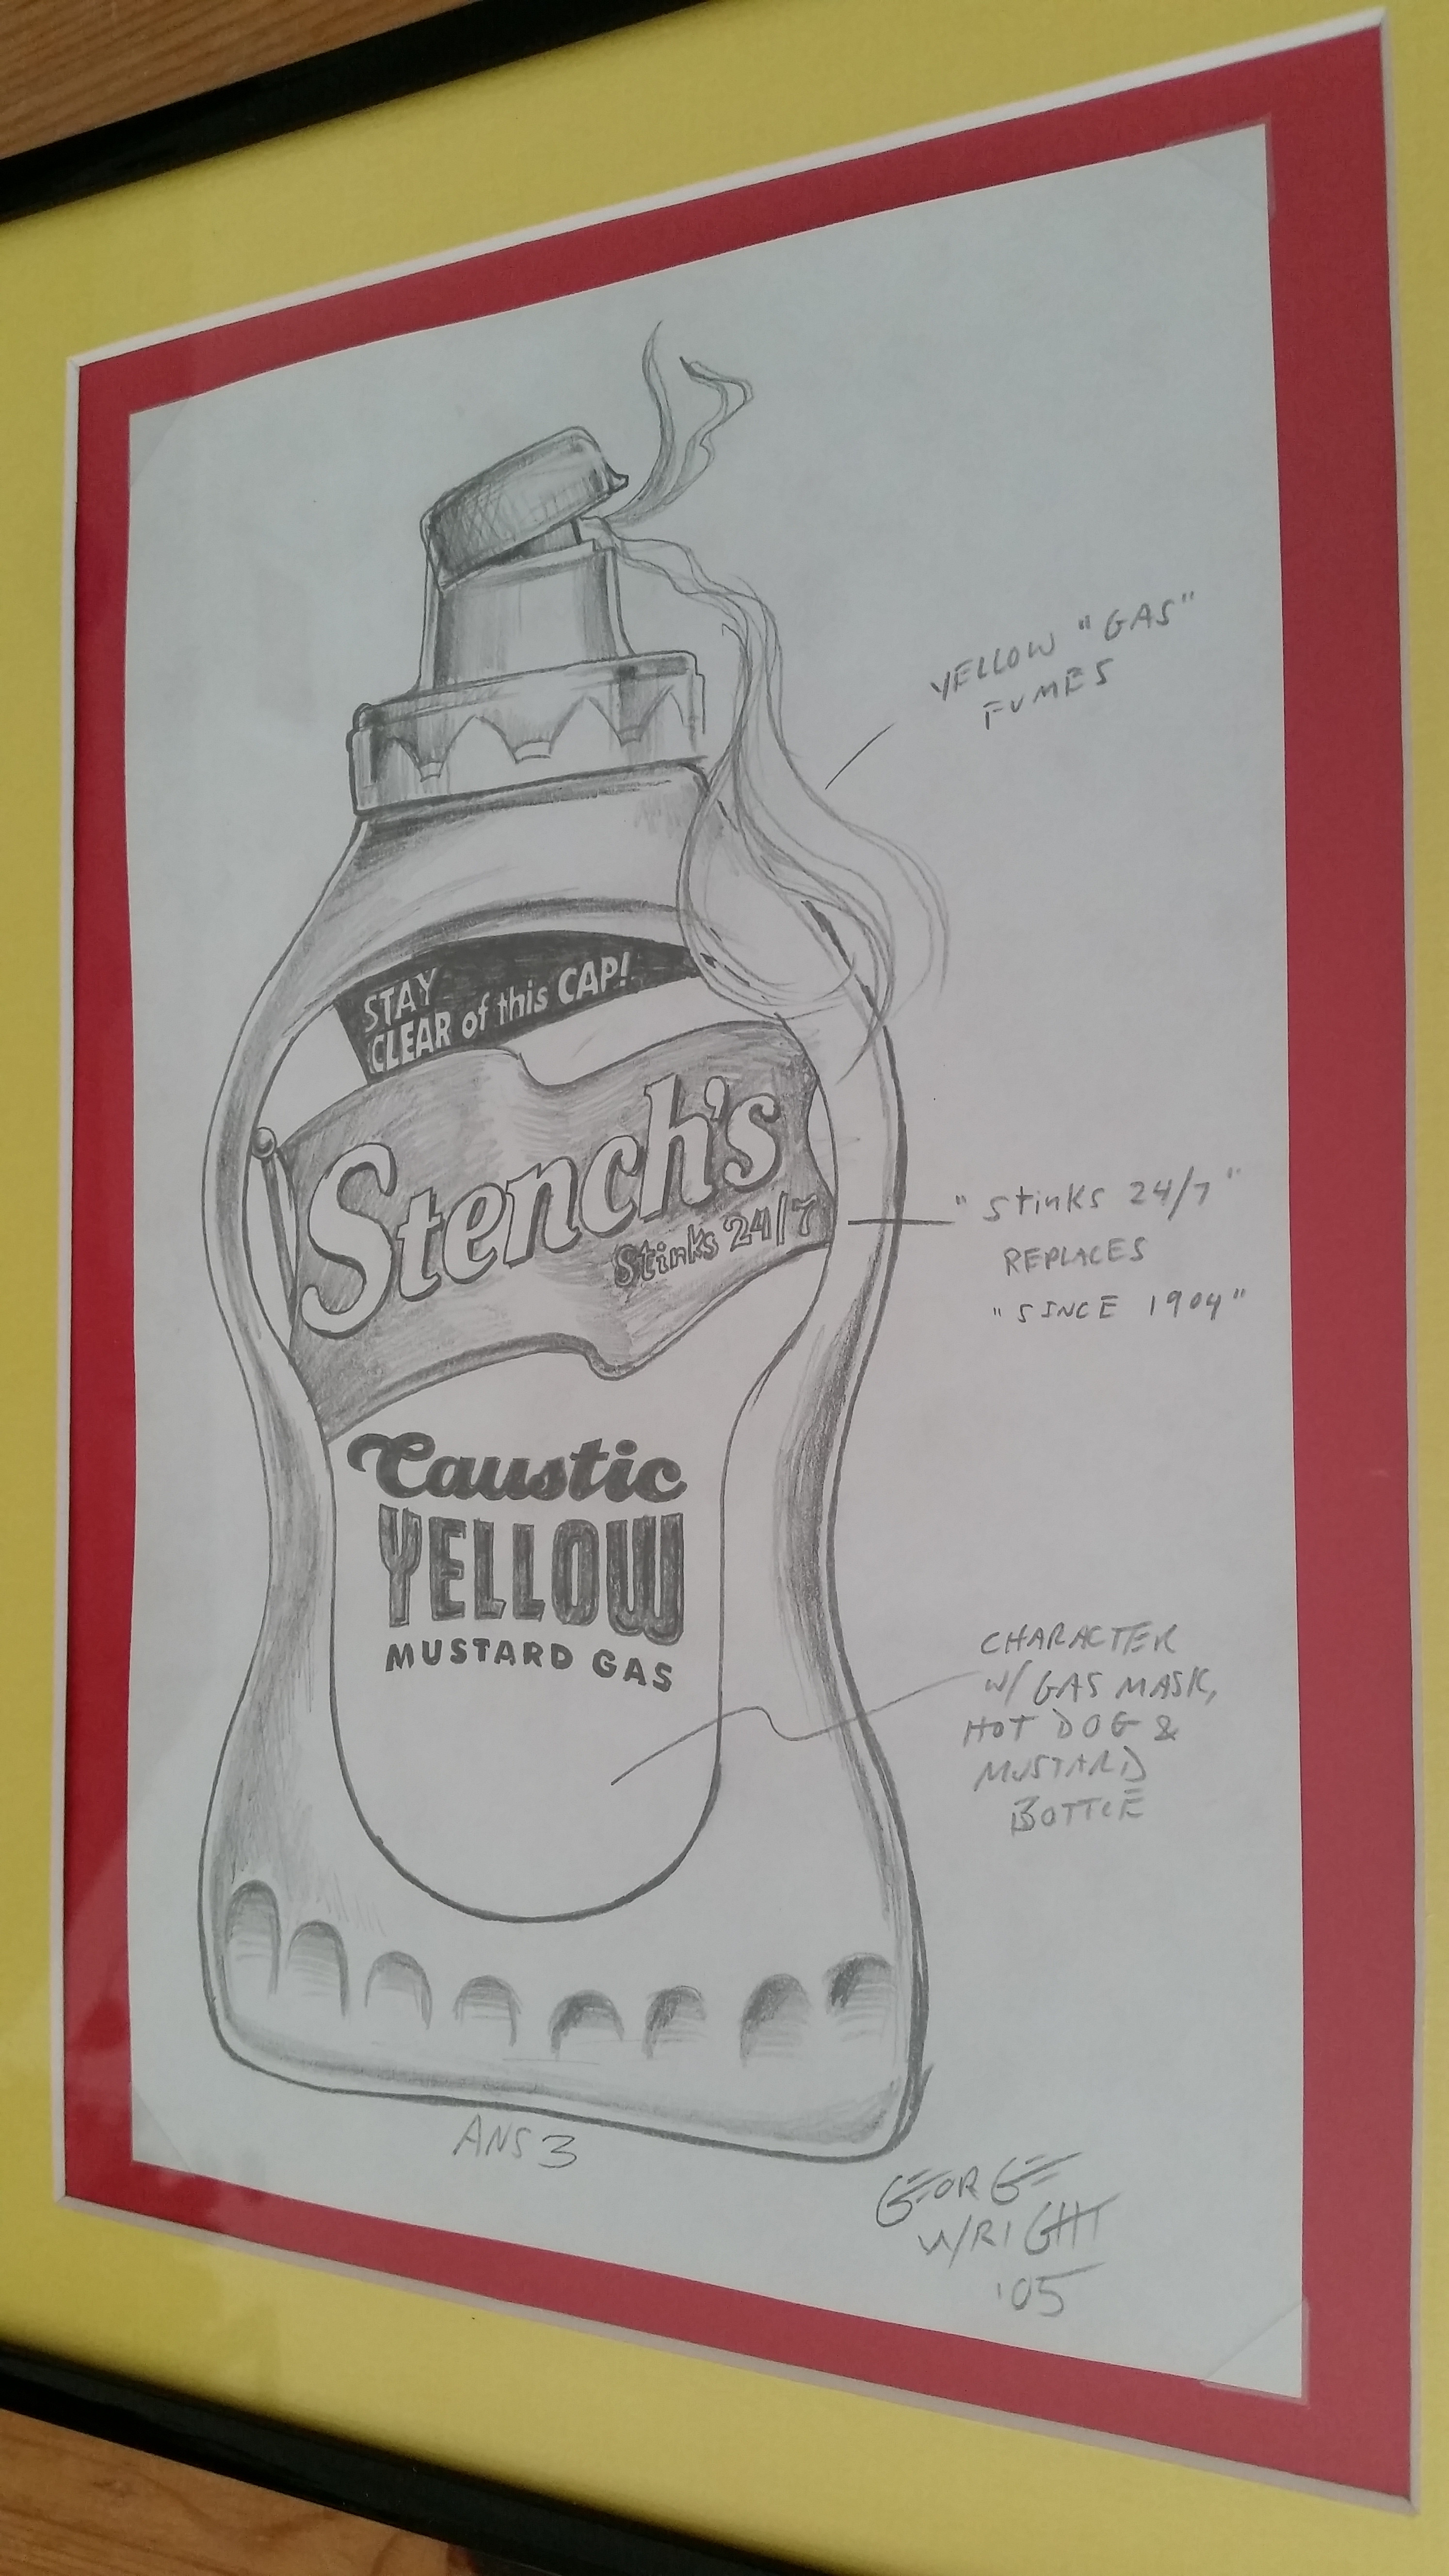 YELLOW "GAS"
FUMES
STAY
CLEAR of this CAP!
Stench's
Stinks 24/7
"Stinks 24/7"
REPLACES
"SINCE 1904"
Caustic
YELLOW
MUSTARD GAS
CHARACTER
W/ GAS MASK,
HOT DOG &
MUSTARD
BOTTLE
ANS 3
GEORGE
WRIGHT
'05